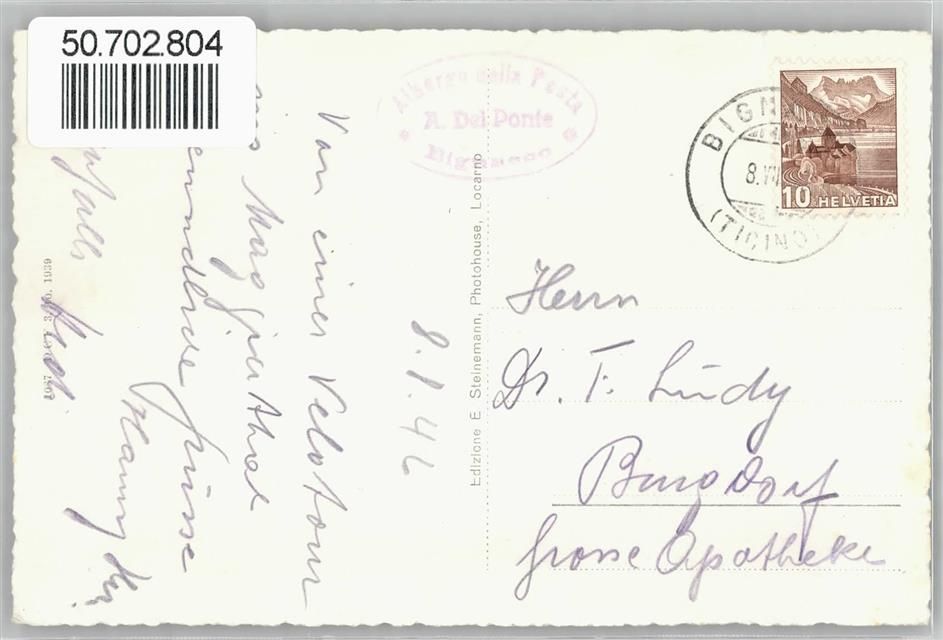 50.702.804
Albergo della Posta
A. Del Ponte
Bignasco
BIGN
8.VII
(TICINO)
10 HELVETIA
8.7.46
Von einer Velotour
Maggiathal
freundliche Grüsse
Hanny
Edizione E. Steinemann, Photohouse, Locarno
1939
Herrn
Dr. F. Lüdy
Burgdorf
Grosse Apotheke